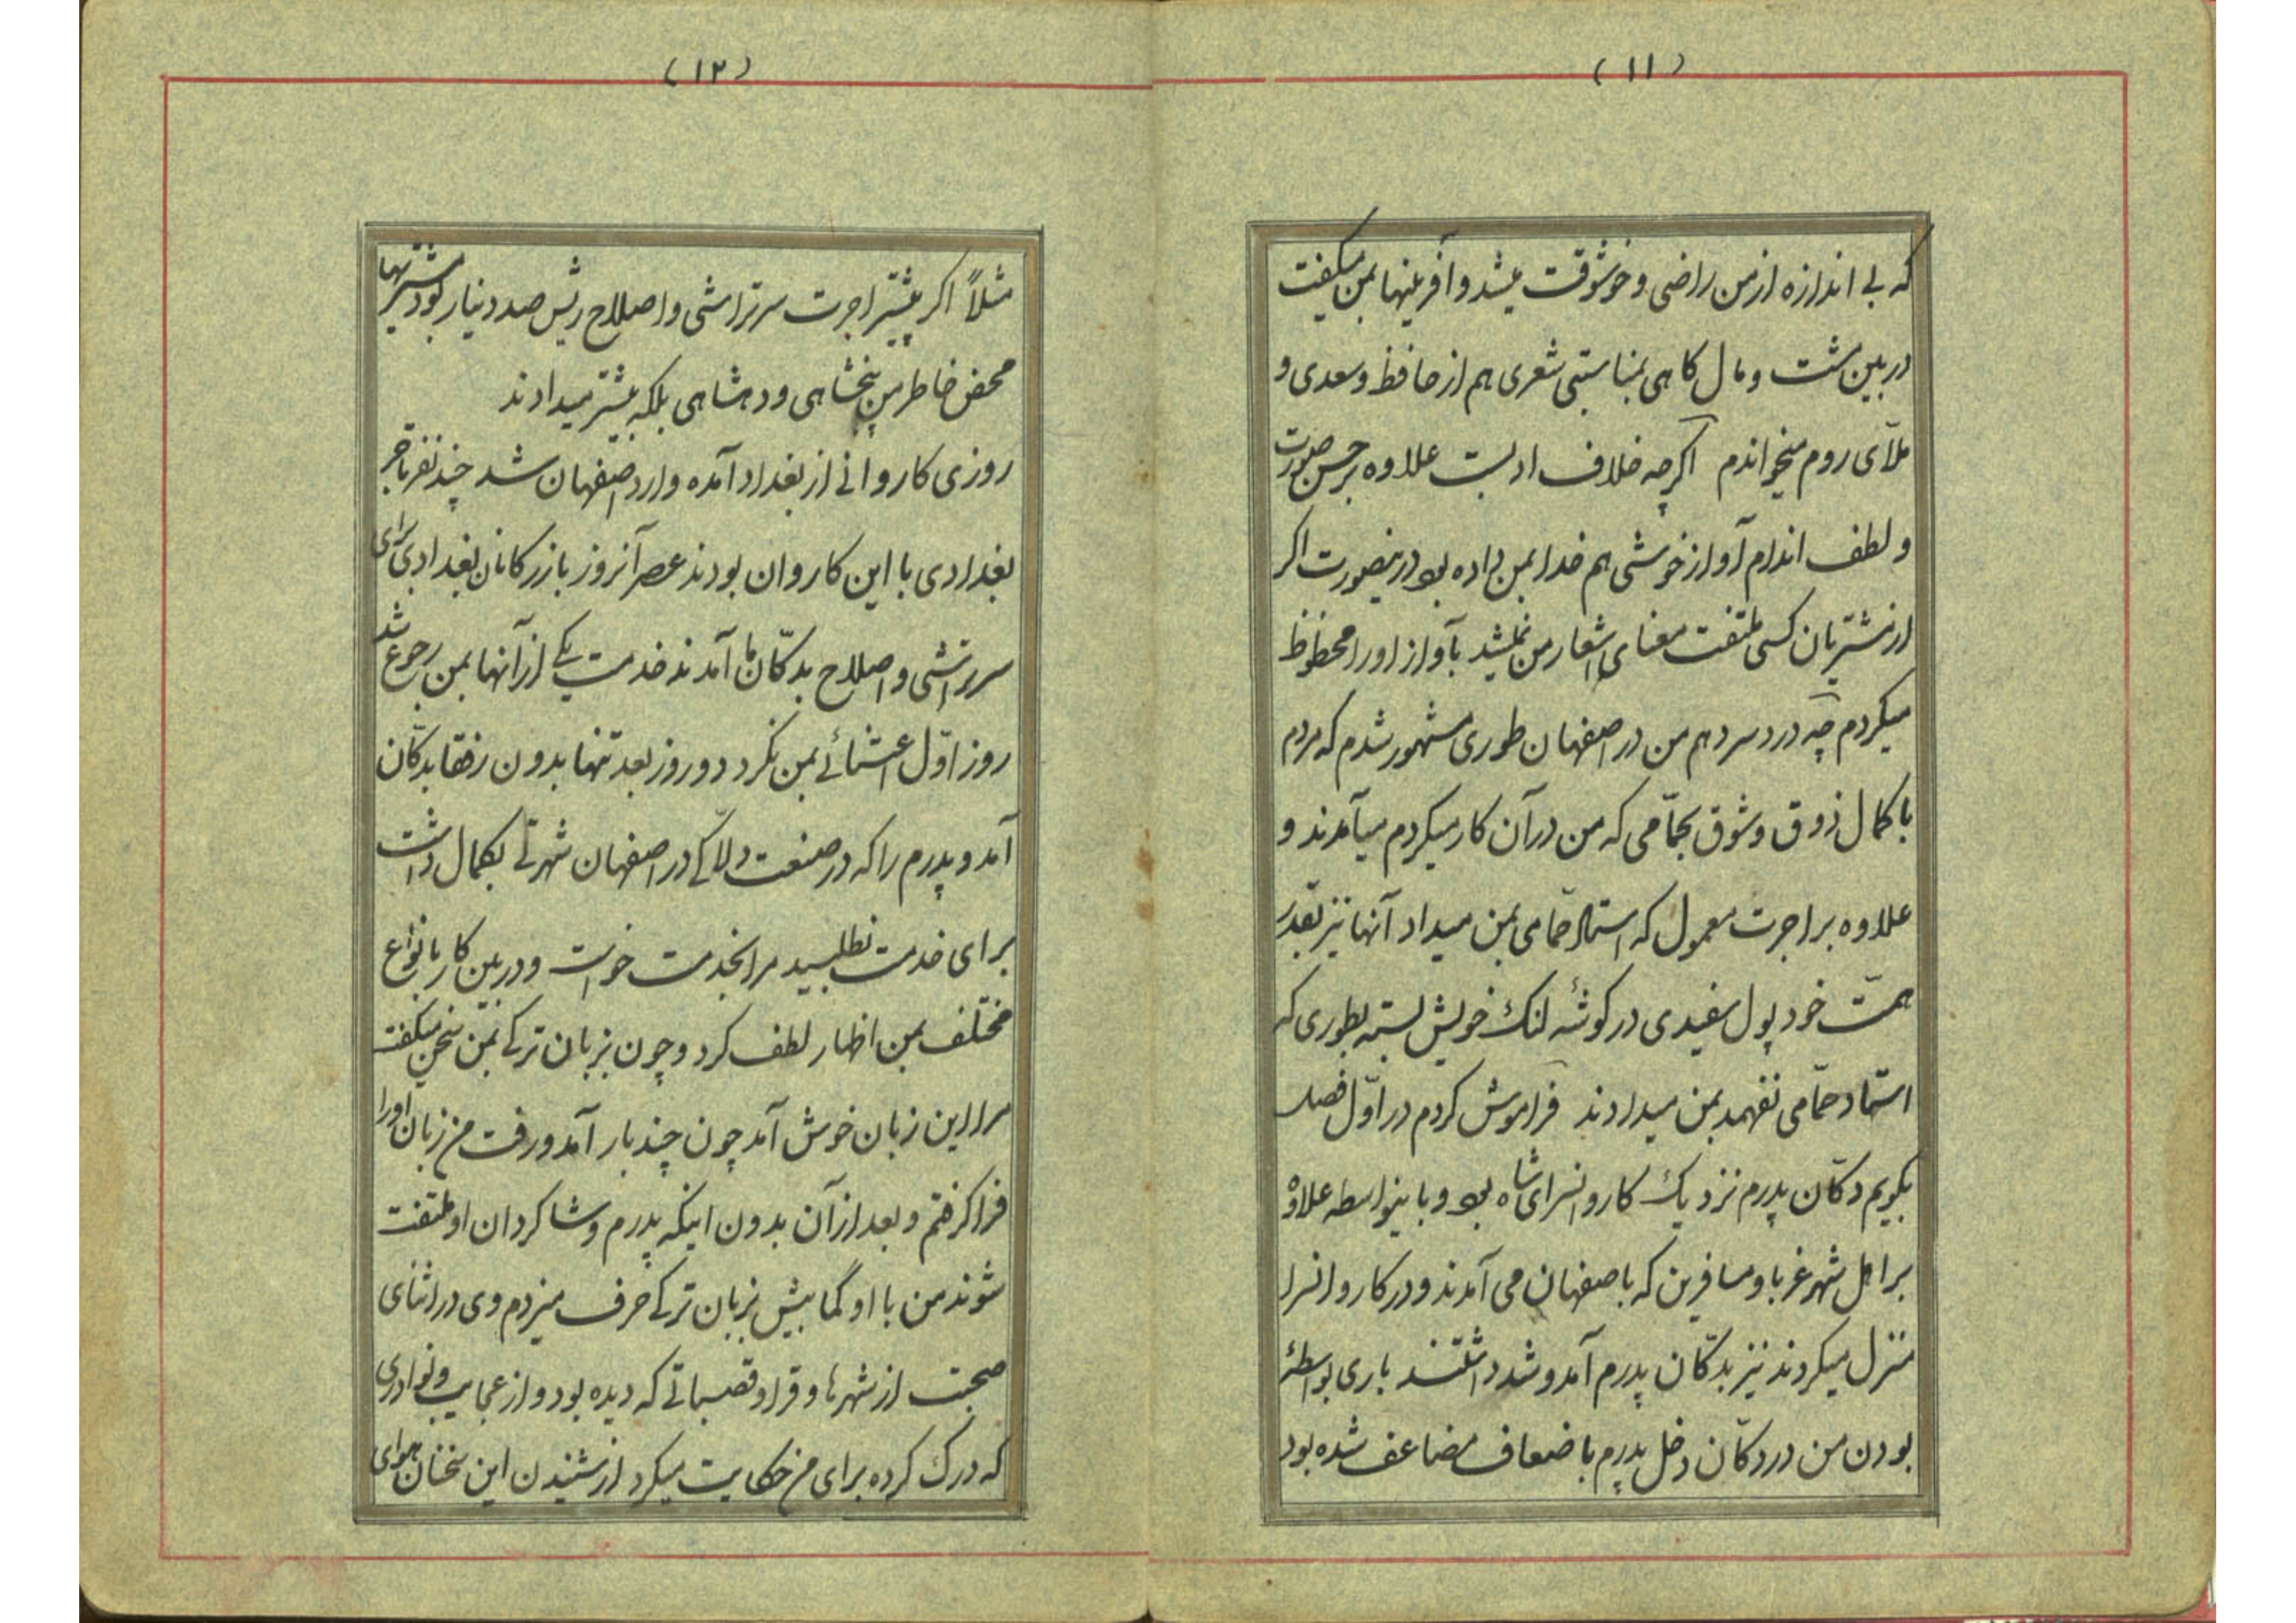 (۱۱)
که بی اندازه از من راضی و خوشوقت میشد و آفرینها بمن میگفت
در بین مشت و مال گاهی بمناسبتی شعری هم از حافظ و سعدی و
ملّای روم میخواندم اگرچه خلاف ادبست علاوه بر حسن صورت
و لطف اندام آواز خوشی هم خدا بمن داده بود درینصورت اگر
از مشتریان کسی ملتفت معنای اشعار من نمیشد بآواز او را محظوظ
میکردم چه دردسر دهم من در اصفهان طوری مشهور شدم که مردم
با کمال ذوق و شوق بحمّامی که من در آن کار میکردم میآمدند و
علاوه بر اجرت معمول که استاد حمّامی بمن میداد آنها نیز بقدر
همّت خود پول سفیدی در گوشهٔ لنگ خویش بسته بطوری که
استاد حمّامی نفهمد بمن میدادند فراموش کردم در اوّل فصل
بگویم دکّان پدرم نزدیک کاروانسرای شاه بود و باینواسطه علاوه
بر اهل شهر غربا و مسافرین که باصفهان می آمدند و در کاروانسرا
منزل میکردند نیز بدکّان پدرم آمد و شد داشتند باری بواسطهٔ
بودن من در دکّان دخل پدرم باضعاف مضاعف شده بود
(۱۲)
مثلاً اگر پیشتر اجرت سرتراشی و اصلاح ریش صد دینار بود مشتریها
محض خاطر من پنجشاهی و دهشاهی بلکه بیشتر میدادند
روزی کاروانی از بغداد آمده وارد اصفهان شد چند نفر تاجر
بغدادی با این کاروان بودند عصر آنروز بازرگانان بغدادی برای
سرتراشی و اصلاح بدکّان ما آمدند خدمت یکی از آنها بمن رجوع شد
روز اوّل اعتنائی بمن نکرد دو روز بعد تنها بدون رفقا بدکّان
آمد و پدرم را که در صنعت دلّاکی در اصفهان شهرتی بکمال داشت
برای خدمت نطلبید مرا بخدمت خواست و در بین کار بانواع
مختلف بمن اظهار لطف کرد و چون بزبان ترکی بمن سخن میگفت
مرا این زبان خوش آمد چون چند بار آمد و رفت من زبان او را
فرا گرفتم و بعد از آن بدون اینکه پدرم و شاگردان او ملتفت
شوند من با او کمابیش بزبان ترکی حرف میزدم وی در اثنای
صحبت از شهرها و قرا و قصباتی که دیده بود و از عجایب و نوادری
که درک کرده برای من حکایت میکرد از شنیدن این سخنان هوای